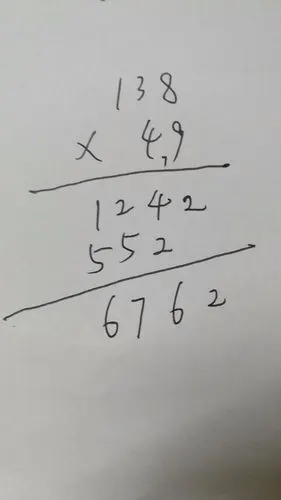 138
× 4,9
1242
552
6762